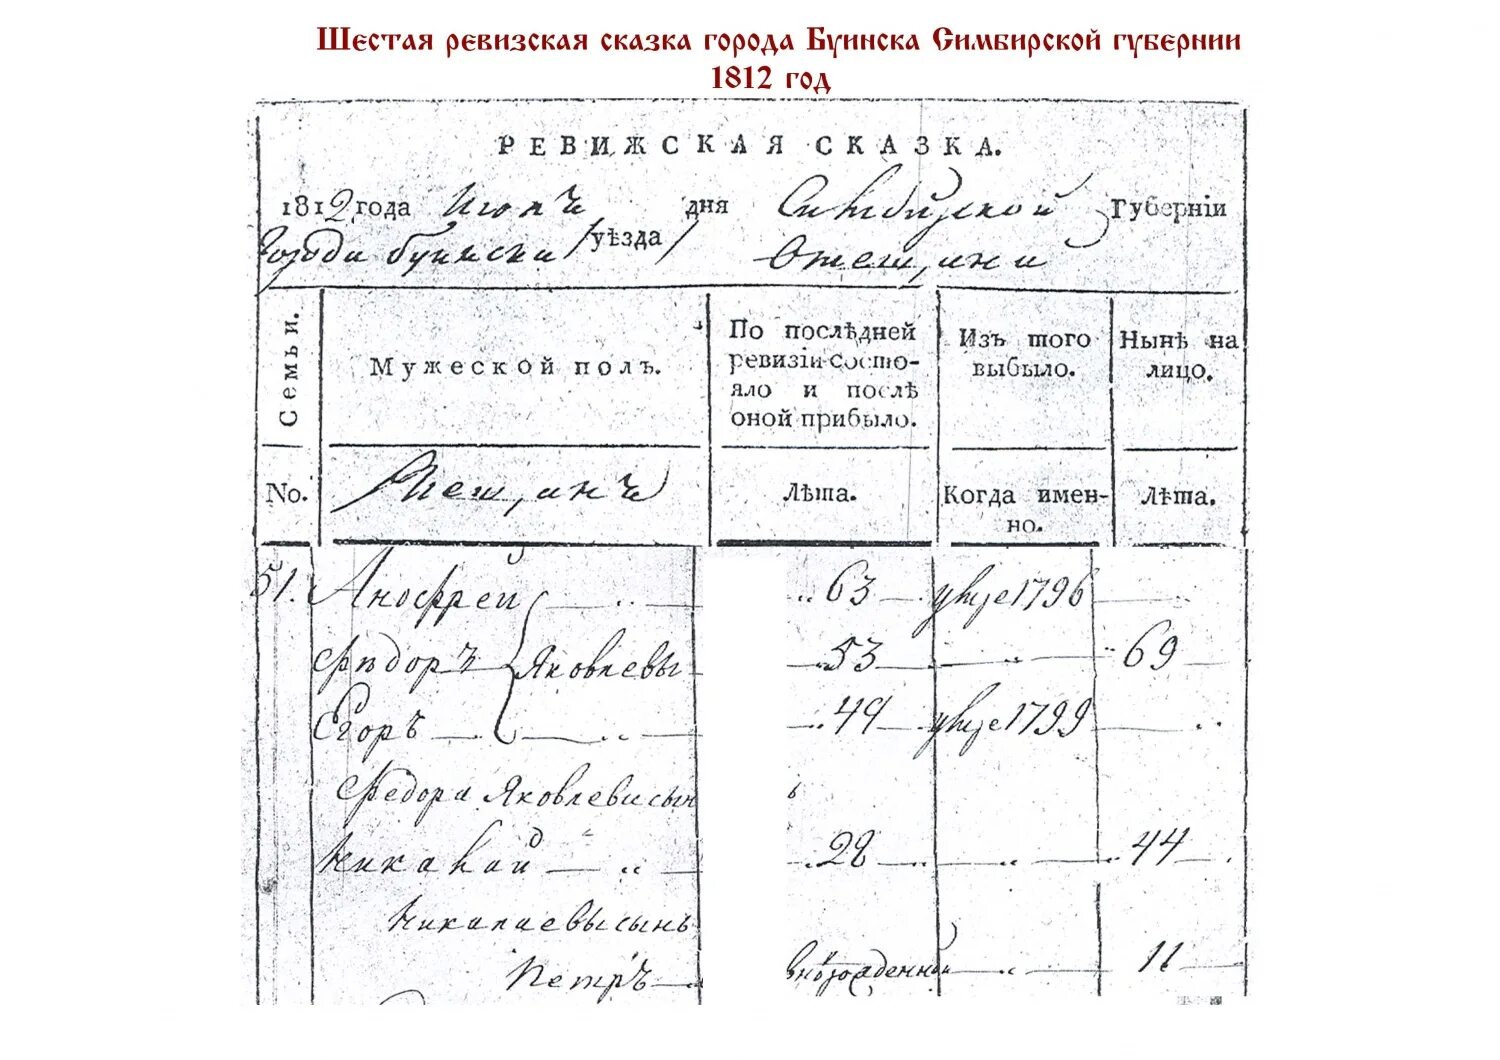 Шестая ревизская сказка города Буинска Симбирской губернии
1812 год
РЕВИЖСКАЯ СКАЗКА.
1812 года Июня дня Симбирской Губерніи
города Буинска /уѣзда/ О мещанах
Семьи.
Мужеской полъ.
По послѣдней ревизіи состо-
яло и послѣ
оной прибыло.
Изъ того
выбыло.
Нынѣ на
лицо.
No.
Мещанъ
Лѣта.
Когда имен-
но.
Лѣта.
51. Анофрей 63 умре 1796
Фёдоръ Яковлевы 53 69
Егоръ 49 умре 1799
Федора Яковлева сын
Николай 28 44
Николаевы сынъ
Петръ новорожденной 11